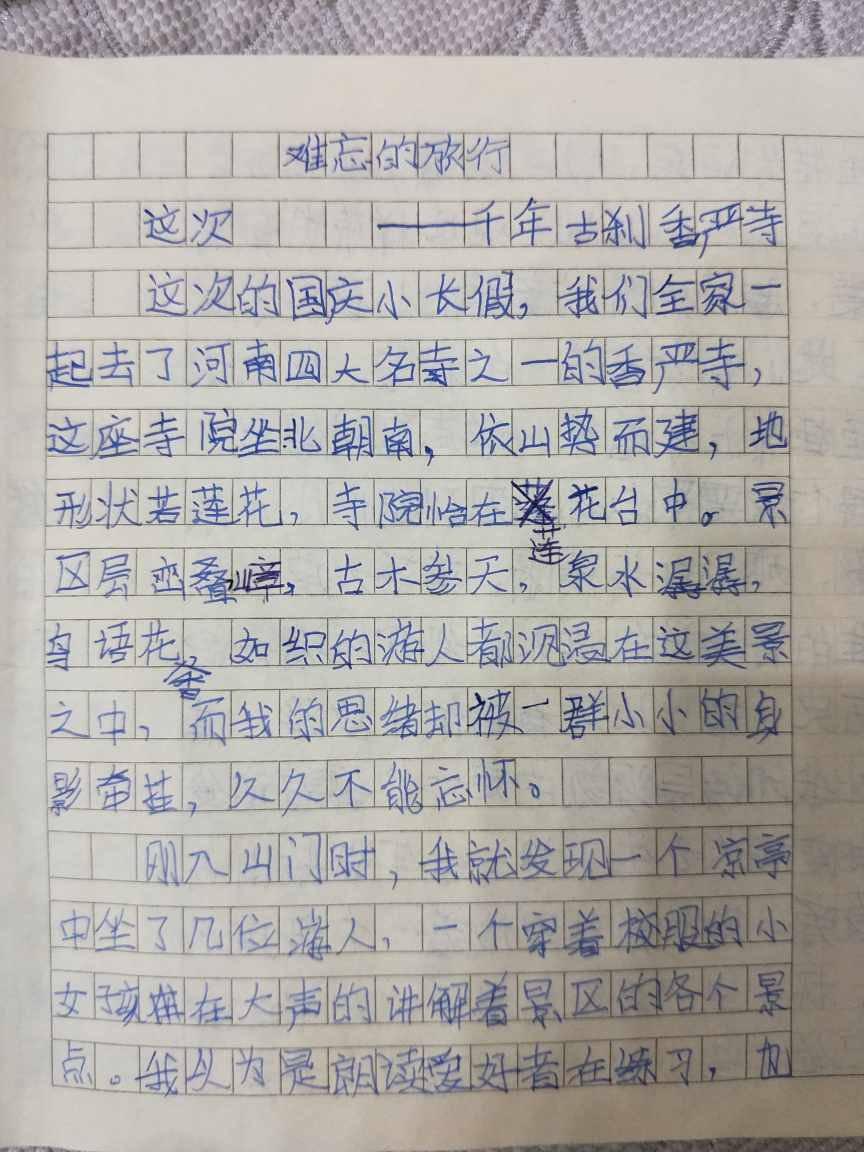 难忘的旅行
这次 ——千年古刹香严寺
这次的国庆小长假，我们全家一
起去了河南四大名寺之一的香严寺，
这座寺院坐北朝南，依山势而建，地
形状若莲花，寺院恰在莲花台中。景
区层峦叠嶂，古木参天，泉水潺潺，
鸟语花香，如织的游人都沉浸在这美景
之中，而我的思绪却被一群小小的身
影牵挂，久久不能忘怀。
刚入山门时，我就发现一个凉亭
中坐了几位游人，一个穿着校服的小
女孩在大声的讲解着景区的各个景
点。我以为是朗读爱好者在练习，也